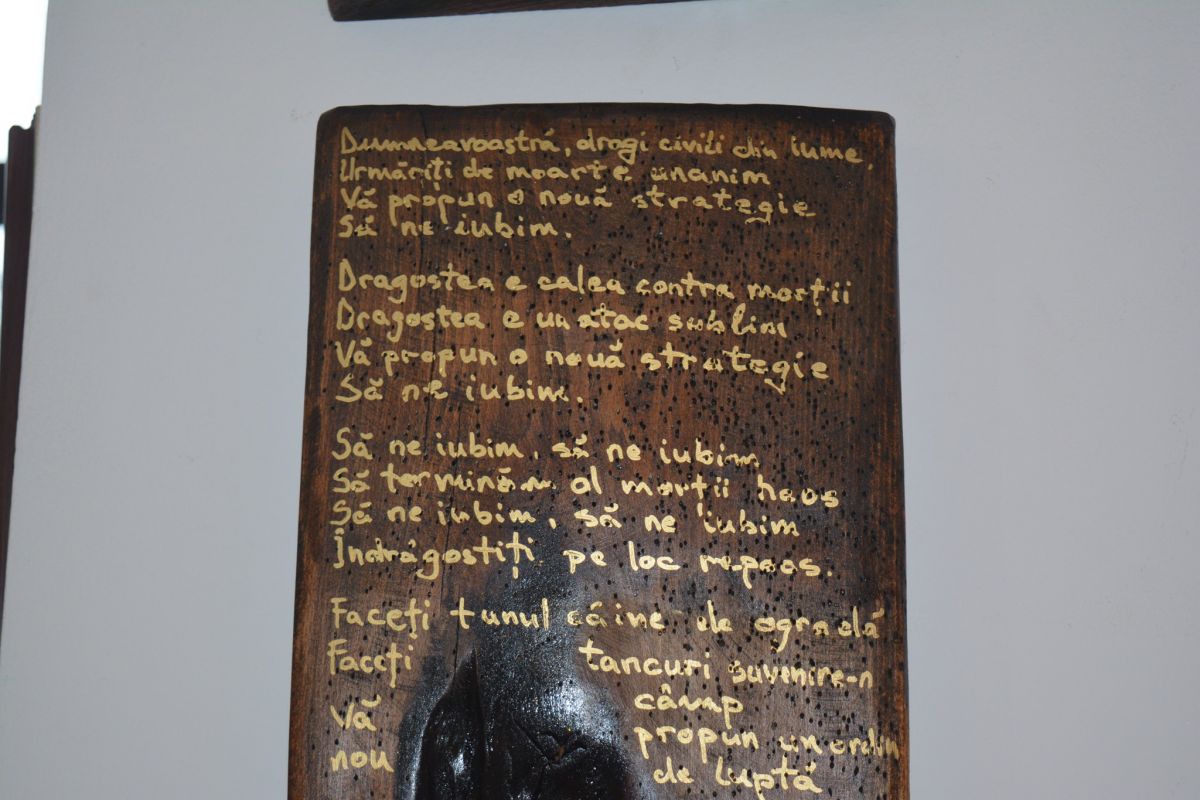 Dumneavoastră, dragi civili din lume,
Urmăriți de moarte unanim
Vă propun o nouă strategie
Să ne iubim.
Dragostea e calea contra morții
Dragostea e un atac sublim
Vă propun o nouă strategie
Să ne iubim.
Să ne iubim, să ne iubim
Să terminăm al morții haos
Să ne iubim, să ne iubim
Îndrăgostiți pe loc repaos.
Faceți tunul câine de ogradă
Faceți tancuri suvenire-n
câmp
Vă propun un ordin
nou de luptă